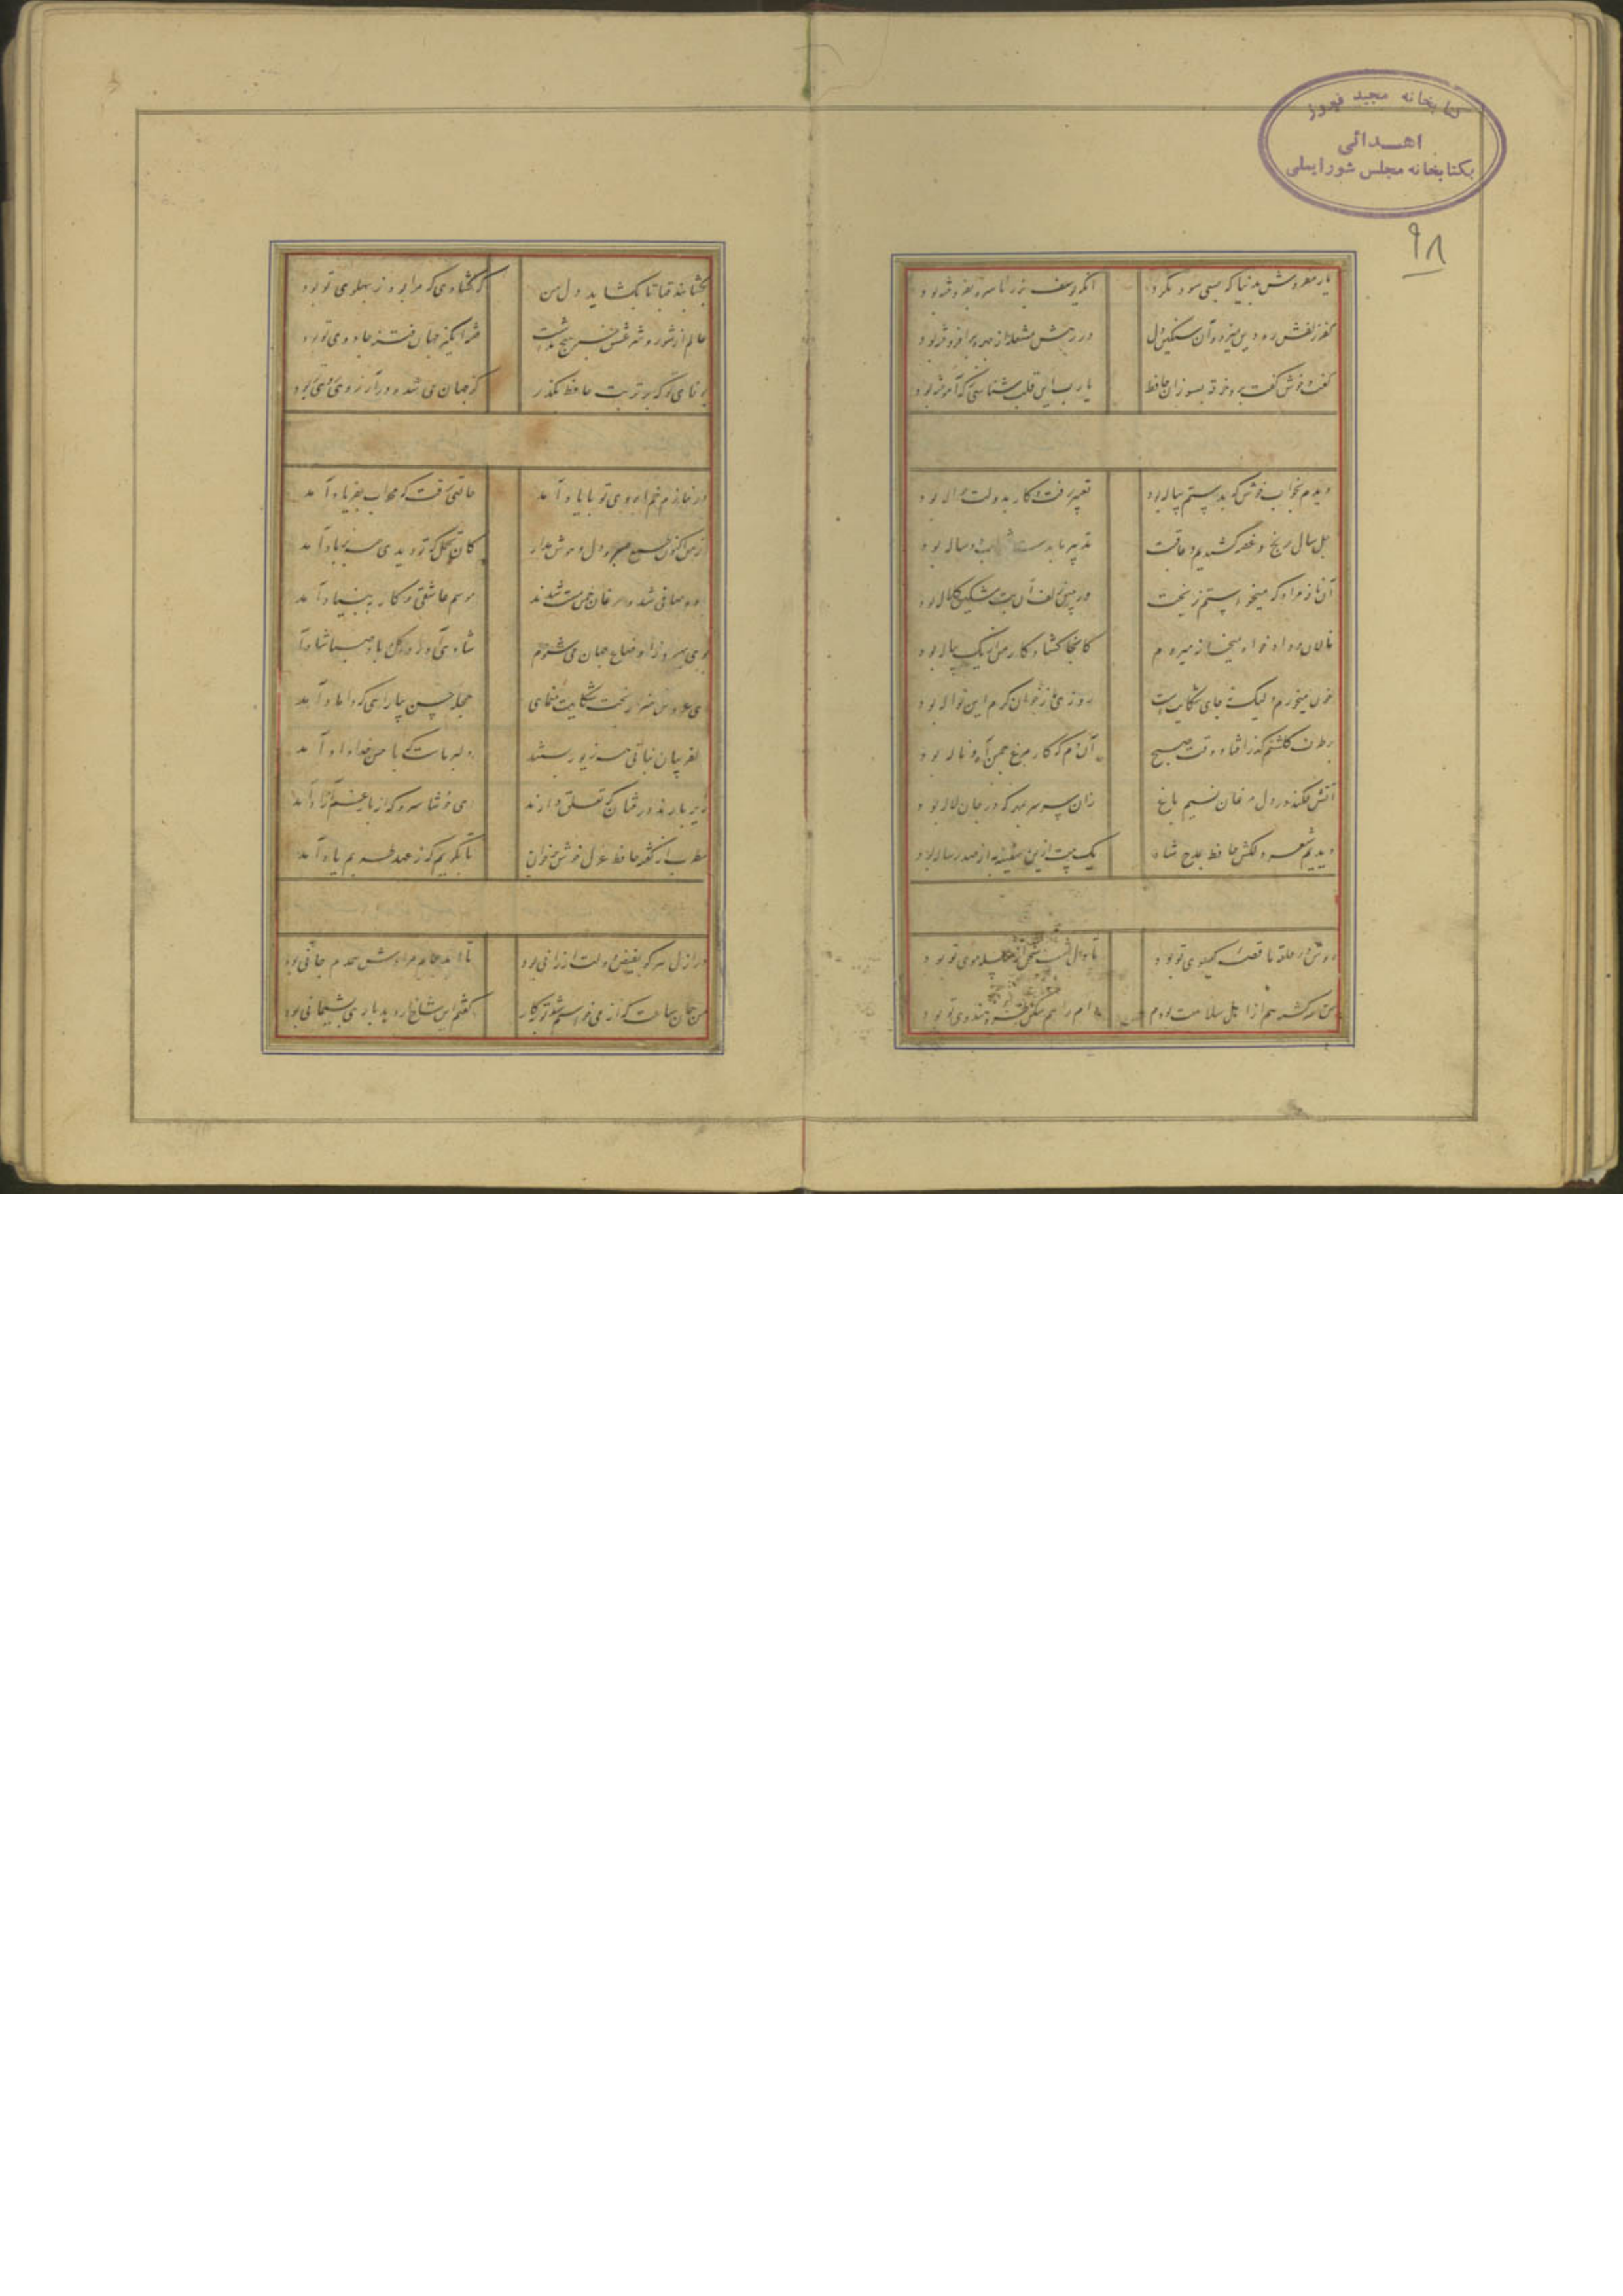 کتابخانه مجید فیروز
اهدائی
بکتابخانه مجلس شورایملی
۹۸
یار مفروش بدنیا که بسی سود نکرد آنکه یوسف بزر ناسره بفروخته بود
کفر زلفش ره دین میزد و آن سنگین دل در رهش مشعله از چهره برافروخته بود
گفت و خوش گفت برو خرقه بسوزان حافظ یارب این قلب شناسی ز که آموخته بود
دیدم بخواب خوش که بدستم پیاله بود تعبیر رفت و کار بدولت حواله بود
چل سال رنج و غصه کشیدیم و عاقبت تدبیر ما بدست شراب دو ساله بود
آن نافه مراد که میخواستم ز بخت در چین زلف آن بت مشکین کلاله بود
نالان و داد خواه بمیخانه میروم کانجا گشاد کار من از یک پیاله بود
خون میخورم ولیک نه جای شکایتست روزی ما ز خوان کرم این نواله بود
بر طرف گلشنم گذر افتاد وقت صبح آن دم که کار مرغ چمن آه و ناله بود
آتش فکند در دل مرغان نسیم باغ زان سر بمهر که در جان لاله بود
دیدیم شعر دلکش حافظ بمدح شاه یک بیت ازین سفینه به از صد رساله بود
دوش در حلقه ما قصه گیسوی تو بود تا دل شب سخن از سلسله موی تو بود
من سرگشته هم از اهل سلامت بودم دام راهم شکن طره هندوی تو بود
بگشا بند قبا تا بگشاید دل من که گشادی که مرا بود ز پهلوی تو بود
عالم از شور و شر عشق خبر هیچ نداشت فتنه انگیز جهان غمزه جادوی تو بود
بوفای تو که بر تربت حافظ بگذر کز جهان می شد و در آرزوی روی تو بود
در نمازم خم ابروی تو با یاد آمد حالتی رفت که محراب بفریاد آمد
از من اکنون طمع صبر و دل و هوش مدار کان تحمل که تو دیدی همه بر باد آمد
باده صافی شد و مرغان چمن مست شدند موسم عاشقی و کار به بنیاد آمد
بوی بهبود ز اوضاع جهان می شنوم شادی آورد گل و باد صبا شاد آمد
ای عروس هنر از بخت شکایت منمای حجله حسن بیارای که داماد آمد
دلفریبان نباتی همه زیور بستند دلبر ماست که با حسن خداداد آمد
زیر بارند درختان که تعلق دارند ای خوشا سرو که از بار غم آزاد آمد
مطرب از گفته حافظ غزل خوش بخوان تا بگریم که ز عهد طربم یاد آمد
در ازل هر کو بفیض دولت ارزانی بود تا ابد جام مرادش همدم جانی بود
من همان ساعت که از می خواستم شد توبه کار گفتم این شاخ ار دهد باری پشیمانی بود